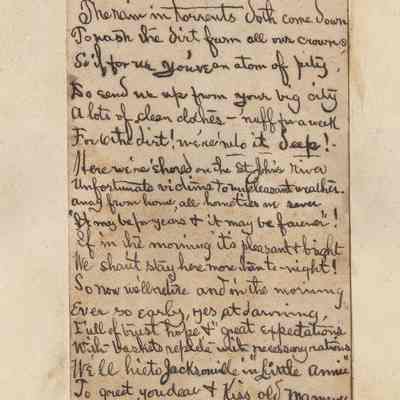 The rain in torrents doth come down
To wash the dirt from all our crowns
So if for us you've an atom of pity,
Do send us up from your big city
A lots of clean clothes – nuff for a week
For oh the dirt! we're into it deep! -
Here we're 'shored on the St John's River
Unfortunate victims to unpleasant weather.
away from home, all home ties we sever
"It may be for years & it may be forever"!
If in the morning it's pleasant & bright
We shan't stay here more than to-night!
So now we'll retire and in the morning
Ever so early, yes at dawning,
Full of trust hope & "great expectations
With baskets replete with necessary rations
We'll hie to Jacksonville in "Little Annie"
To greet you dear & Kiss old